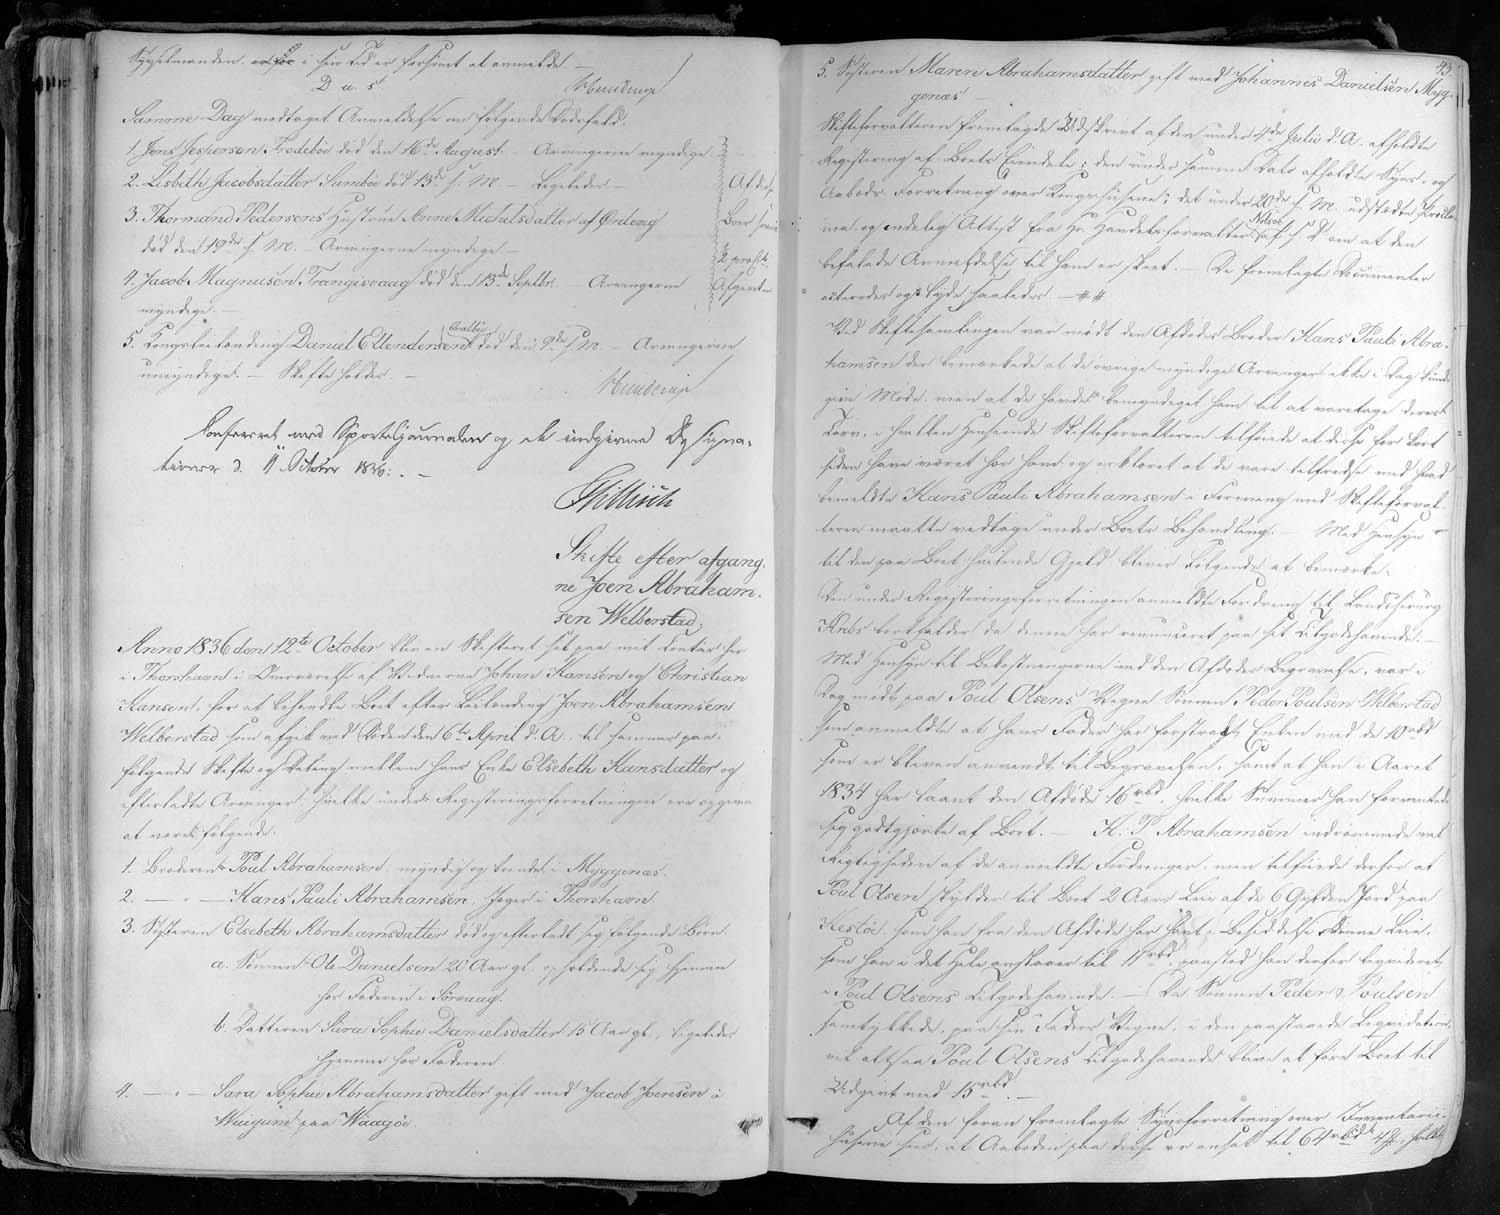 Sysselmanden, i sin Tid er forsømt at anmeldt. —
D. u. s.
Hunderup
Samme Dag modtaget Anmeldelse om følgende Dødsfald:
1. Jens Jespersen Frodebøe død den 16de August — Arvingerne myndige —
2. Lisbeth Jacobsdatter Sumbøe død 13de s. M. — Ligeledes —
3. Thormand Pedersens Hustrue Anne Michelsdatter af Ordevig
død den 19de s. M. — Arvingerne myndige —
4. Jacob Magnusen Trangisvaag død den 13de Septbr. — Arvingerne
myndige. —
5. Kongsfæstending Daniel Ellendersen død den 9de s. M. — Arvingerne
umyndige. — Skifte holdes. —
Hunderup
Confereret med Sportelsjournalen og de indgivne Designa-
tioner d. 11 October 1836. —
Tillisch
Skifte efter afgang-
ne Joen Abraham-
sen Welberstad,
Anno 1836 den 12te October blev en Skifteret sat paa mit Contoir her
i Thorshavn i Overværelse af Vidnerne Johan Hansen og Christian
Hansen, for at behandle Boet efter Leilending Joen Abrahamsen
Welberstad som afgik ved Døden den 6te April d. A. til sammes paa-
følgende Skifte og Deling mellem hans Enke Elsebeth Hansdatter og
efterladte Arvinger, hvilke under Registeringsforretningen ere opgivne
at være følgende:
1. Broderen Poul Abrahamsen, myndig og bondes i Myggenæs.
2. — " — Hans Pauli Abrahamsen, Jæger i Thorshavn.
3. Søsteren Elsebeth Abrahamsdatter død og efterladt sig følgende Børn.
a. Sønnen Ole Danielsen 20 Aar gl. opholdende sig hjemme
hos Faderen i Sørvaag.
b. Datteren Sara Sophie Danielsdatter 15 Aar gl., ligeledes
hjemme hos Faderen.
4. — " — Sara Sophie Abrahamsdatter gift med Jacob Joensen i
paa Waagøe.
43.
5. Søsteren Maren Abrahamsdatter gift med Johannes Danielsen Myg-
genæs —
Skifteforvalteren fremlagde Udskrivt af den under 4de Julii d. A. afholdte
Registering af Boets Eiendele; den under samme Dato afholdte Syns- og
Aabods Forretning over Kongshusene; det under 20de s. M. udstædte Procla-
ma og endelig Attest fra Hr. Handelsforvalter Nolsøe af s. D. om at den
befalede Anmeldelse til ham er skeet. — De fremlagte Documenter
acteredes og lyde saaledes. —
Ved Skiftesamlingen var mødt den Afdødes Broder Hans Pauli Abra-
hamsen der bemærkede at de øvrige myndige Arvinger ikke i Dag kunde
give Møde, men at de havde bemyndiget ham til at varetage deres
Tarv, i hvilken Henseende Skifteforvalteren tilføiede at disse for kort
siden have været hos ham og erklæret at de vare tilfredse med hvad
bemeldte Hans Pauli Abrahamsen i Forening med Skifteforval-
teren maatte vedtage under Boets Behandling. — Med Hensyn
til den paa Boet hvilende Gjeld bliver Følgende at bemærke:
Den under Registeringsforretningen anmeldte Fordring til Landchirurg
bortfalder da denne har renunceret paa sit Tilgodehavende. —
Med Hensyn til Bekostningerne ved den Afdødes Begravelse, var i
Dag mødt paa Poul Olsens Vegne Sønnen Peder Poulsen Welberstad
som anmeldte at hans Fader har forstrakt Enken med de 10 rbd
som er bleven anvendt til Begravelsen, samt at han i Aaret
1834 har laant den Afdøde 16 rbd, hvilke Summer han forventede
sig godtgjorte af Boet. — H. P. Abrahamsen indrømmede vel
Rigtigheden af de anmeldte Fordringer, men tilføiede derhos at
Poul Olsen skylder til Boet 2 Aars Leie af de 6 Gylden Jord paa
Hestøe, som han fra den Afdøde har havt i Besiddelse. Denne Leie,
som han i det Hele anslaaer til 11 rbd, paastod han derfor liqvideret
i Poul Olsens Tilgodehavende. — Da Sønnen Peder Poulsen
samtykkede, paa sin Faders Vegne, i den paastaaede Liqvidation,
vil altsaa Poul Olsens Tilgodehavende blive at føre Boet til
Udgivt med 15 rbd. —
Af den foran fremlagte Synsforretning over Inventarii-
husene sees, at Aaboden paa disse er ansat til 64 rbd 4 s, hvilke